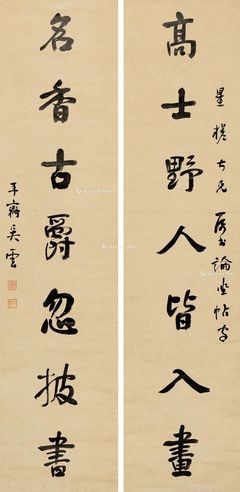 高士野人皆入畫
星槎大兄屬書論坐帖字
名香古爵忽披書
平齋吳雲